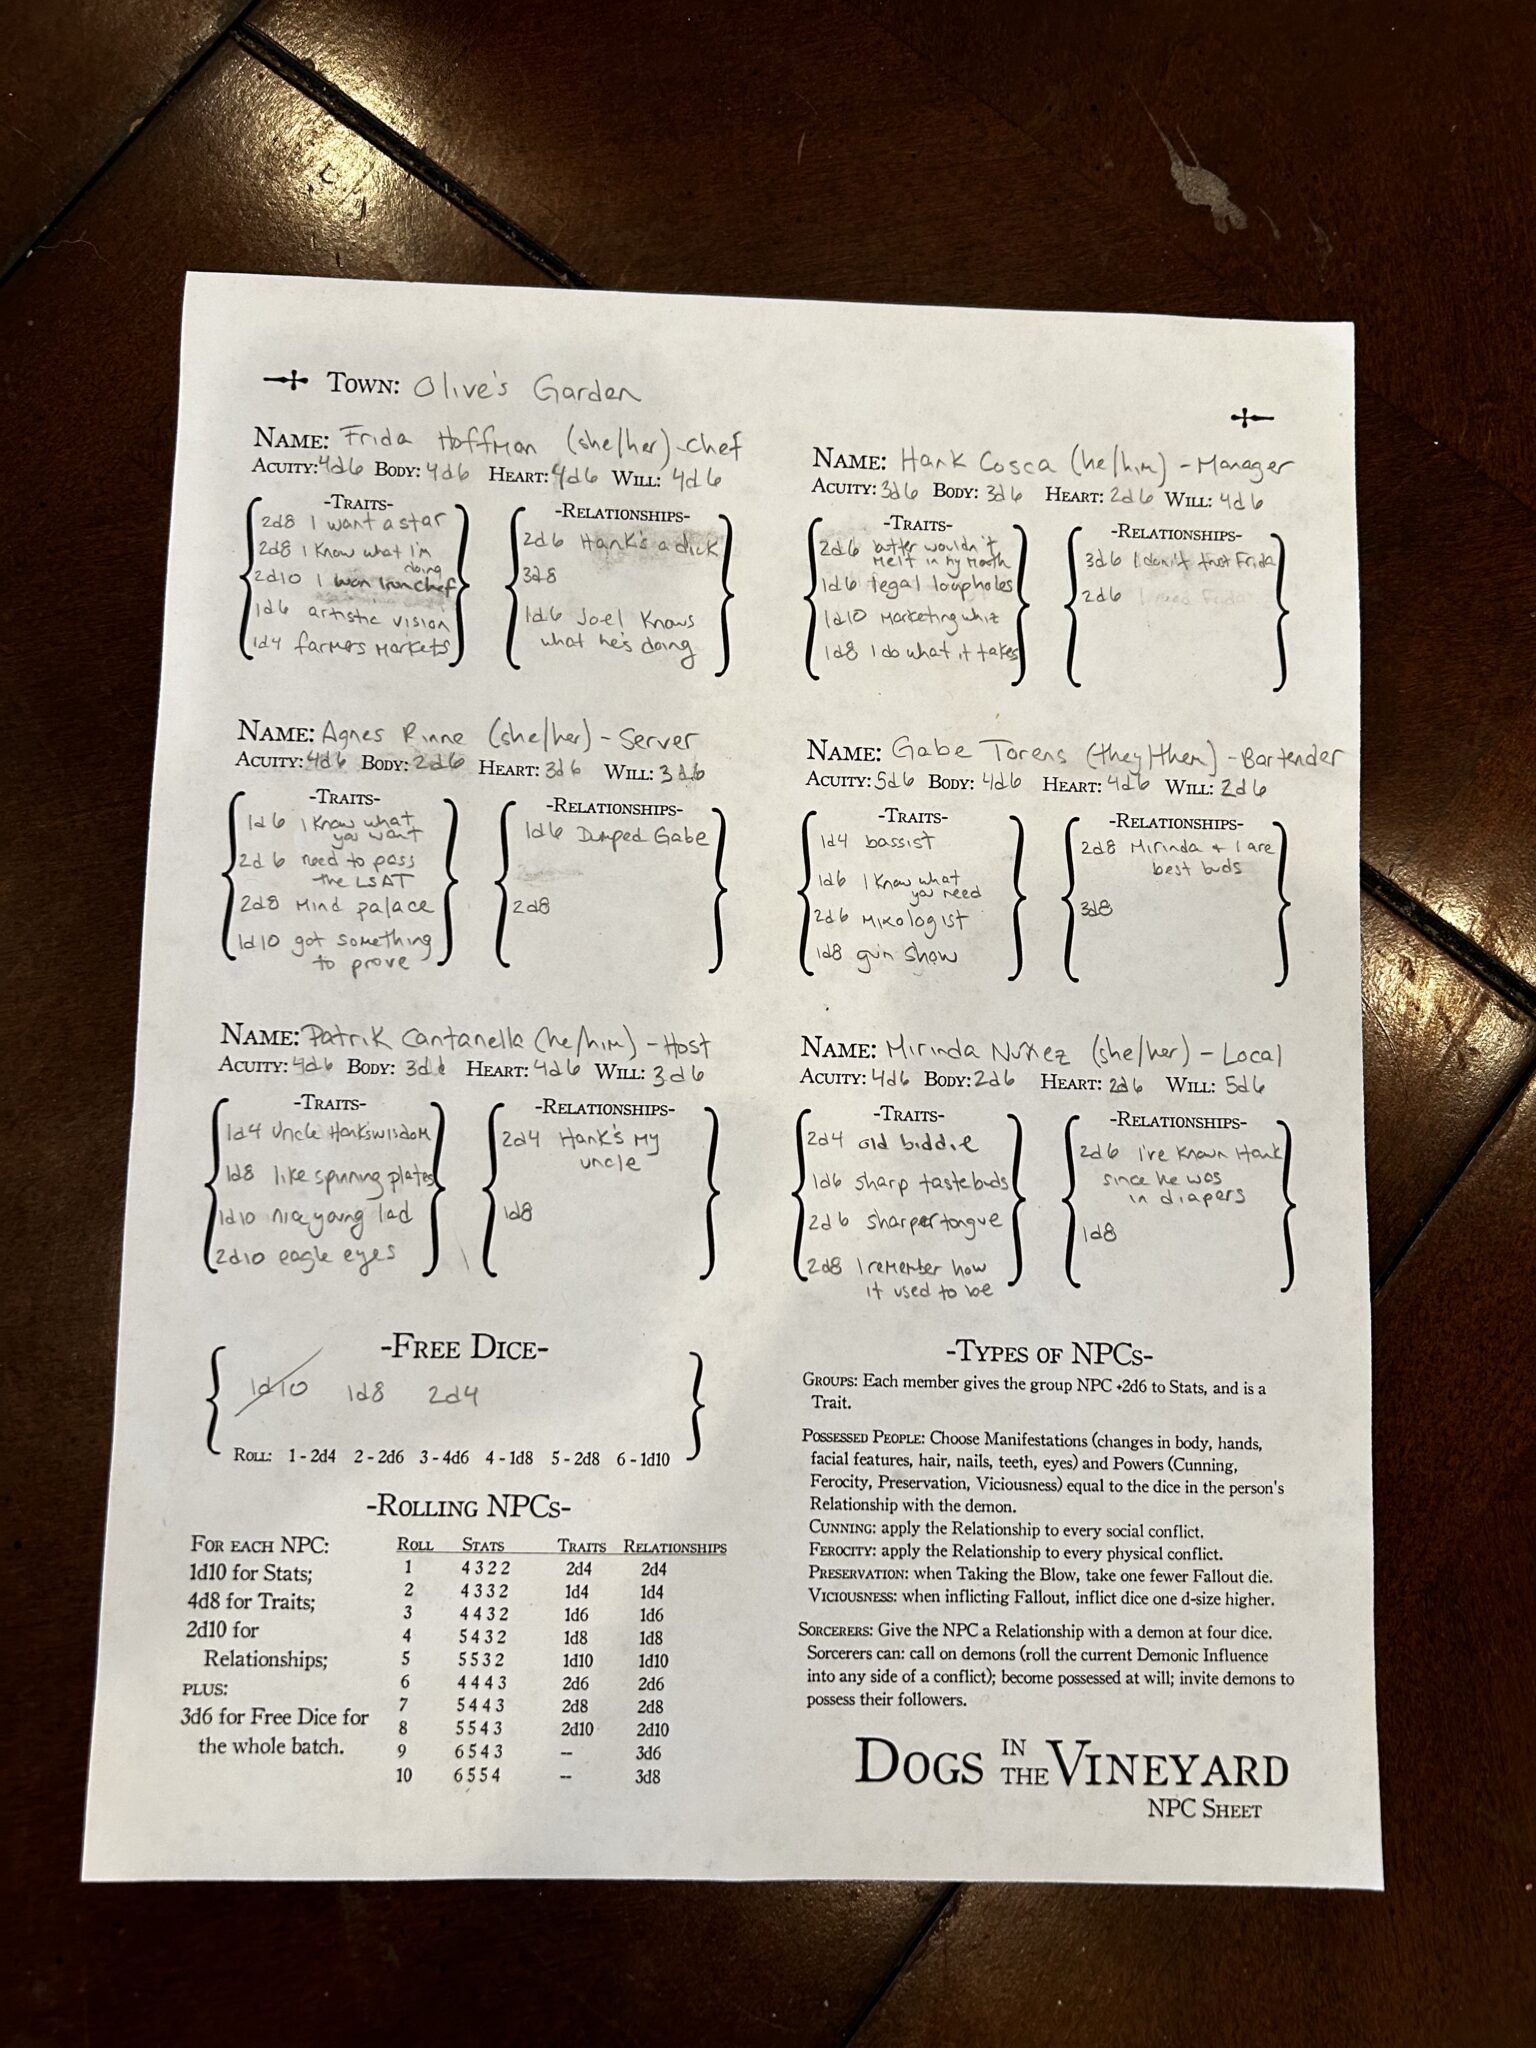 Town: Olive's Garden
Name: Frida Hoffman (she/her) - Chef
Acuity: 4d6 Body: 4d6 Heart: 4d6 Will: 4d6
-Traits-
2d8 I want a star
2d8 I know what I'm
doing
2d10 I won Iron chef
1d6 artistic vision
1d4 farmers markets
-Relationships-
2d6 Hank's a dick
3d8
1d6 Joel knows
what he's doing
Name: Hank Cosca (he/him) - Manager
Acuity: 3d6 Body: 3d6 Heart: 2d6 Will: 4d6
-Traits-
2d6 butter wouldn't
melt in my mouth
1d6 legal loopholes
1d10 Marketing whiz
1d8 I do what it takes
-Relationships-
3d6 I don't trust Frida
2d6 I need Frida
Name: Agnes Rinne (she/her) - Server
Acuity: 4d6 Body: 2d6 Heart: 3d6 Will: 3d6
-Traits-
1d6 I know what
you want
2d6 need to pass
the LSAT
2d8 Mind palace
1d10 got something
to prove
-Relationships-
1d6 Dumped Gabe
2d8
Name: Gabe Torens (they/them) - Bartender
Acuity: 5d6 Body: 4d6 Heart: 4d6 Will: 2d6
-Traits-
1d4 bassist
1d6 I know what
you need
2d6 Mixologist
1d8 gun show
-Relationships-
2d8 Mirinda + I are
best buds
3d8
Name: Patrik Cantanella (he/him) - Host
Acuity: 4d6 Body: 3d6 Heart: 4d6 Will: 3d6
-Traits-
1d4 Uncle Hank's wisdom
1d8 like spinning plates
1d10 nice young lad
2d10 eagle eyes
-Relationships-
2d4 Hank's my
uncle
1d8
Name: Mirinda Nuñez (she/her) - Local
Acuity: 4d6 Body: 2d6 Heart: 2d6 Will: 5d6
-Traits-
2d4 old biddie
1d6 sharp tastebuds
2d6 sharper tongue
2d8 I remember how
it used to be
-Relationships-
2d6 I've known Hank
since he was
in diapers
1d8
-Free Dice-
1d10 1d8 2d4
Roll: 1 - 2d4 2 - 2d6 3 - 4d6 4 - 1d8 5 - 2d8 6 - 1d10
-Rolling NPCs-
For each NPC:
1d10 for Stats;
4d8 for Traits;
2d10 for
Relationships;
plus:
3d6 for Free Dice for
the whole batch.
Roll Stats Traits Relationships
1 4 3 2 2 2d4 2d4
2 4 3 3 2 1d4 1d4
3 4 4 3 2 1d6 1d6
4 5 4 3 2 1d8 1d8
5 5 5 3 2 1d10 1d10
6 4 4 4 3 2d6 2d6
7 5 4 4 3 2d8 2d8
8 5 5 4 3 2d10 2d10
9 6 5 4 3 -- 3d6
10 6 5 5 4 -- 3d8
-Types of NPCs-
Groups: Each member gives the group NPC +2d6 to Stats, and is a
Trait.
Possessed People: Choose Manifestations (changes in body, hands,
facial features, hair, nails, teeth, eyes) and Powers (Cunning,
Ferocity, Preservation, Viciousness) equal to the dice in the person's
Relationship with the demon.
Cunning: apply the Relationship to every social conflict.
Ferocity: apply the Relationship to every physical conflict.
Preservation: when Taking the Blow, take one fewer Fallout die.
Viciousness: when inflicting Fallout, inflict dice one d-size higher.
Sorcerers: Give the NPC a Relationship with a demon at four dice.
Sorcerers can: call on demons (roll the current Demonic Influence
into any side of a conflict); become possessed at will; invite demons to
possess their followers.
Dogs in the Vineyard
NPC Sheet